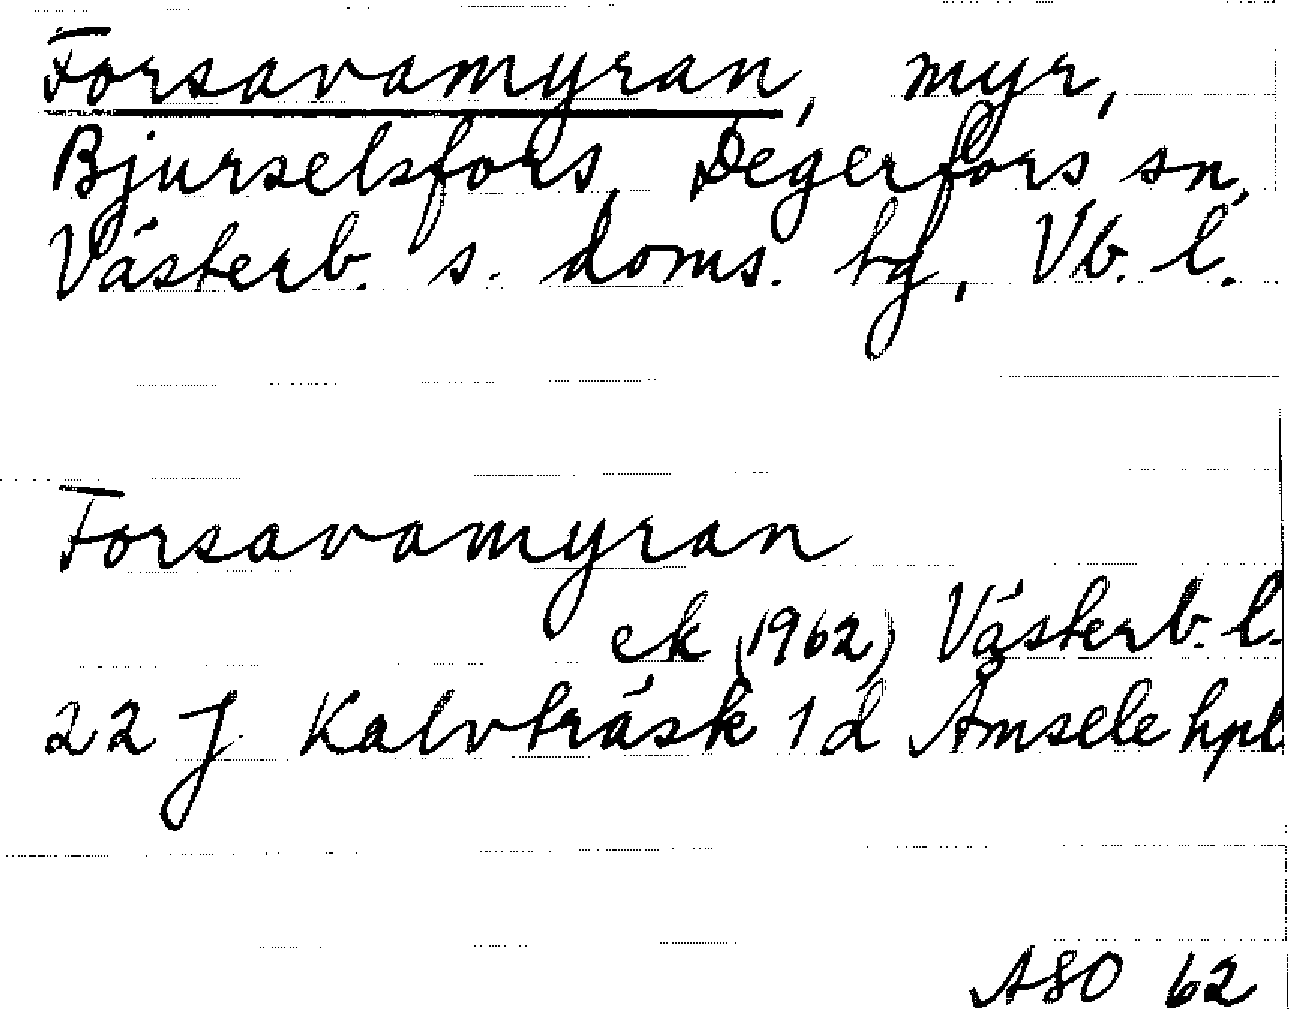 Forsavamyran, myr,
Bjurselsfors, Degerfors sn,
Västerb. s. doms. tg, Vb. l.
Forsavamyran
ek (1962) Västerb. l.
22 J Kalvträsk 1 d Åmsele hpl
ASO 62